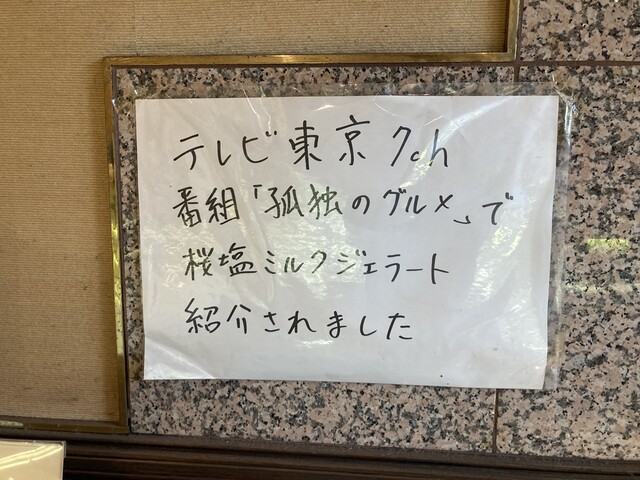 テレビ東京7ch
番組「孤独のグルメ」で
桜塩ミルクジェラート
紹介されました